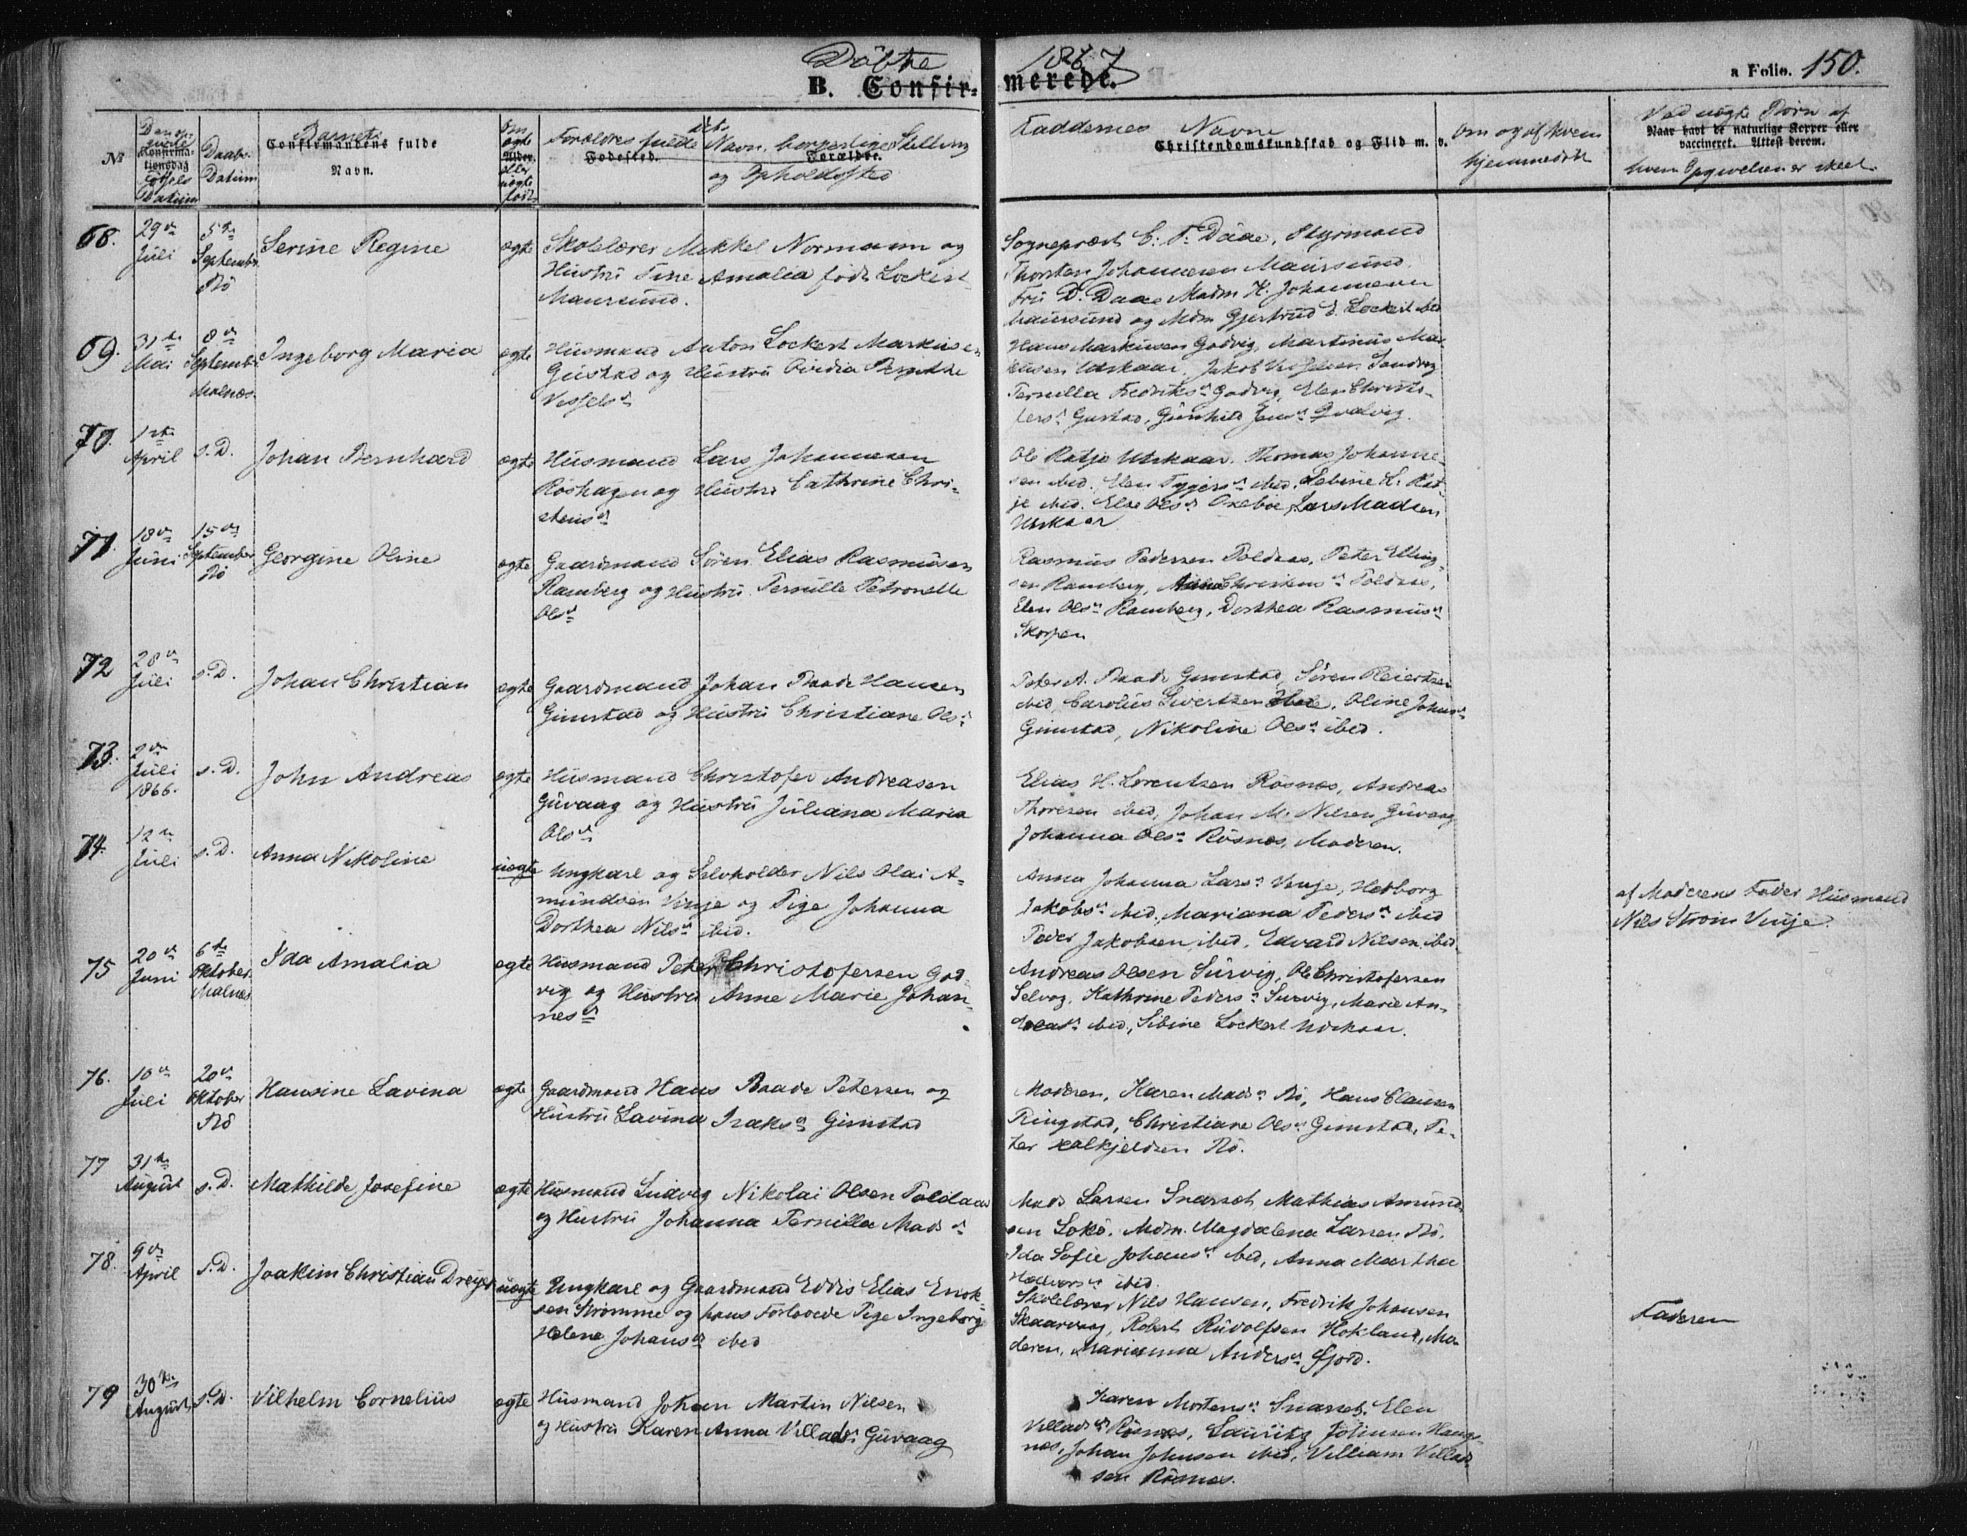 Döbte 1867
B. Confirmerede.
a Folio. 150.
№
Den opgivte Fødsels Datum
Confirmationsdag
Daabs Datum
Barnets
Confirmandens fulde
Navn.
Om ægte eller uægte født
Alder.
Forældres fulde Navn, borgerlige Stilling
Fødested. Forældre.
og Opholdssted
Faddernes Navne
Christendomskundskab og Flid m. v.
Om og af hvem
hjemmedøbt
Ved uægte Børn af
Naar havt de naturlige Kopper eller
vaccineret. Attest derom.
hvem Opgivelsen er skeet.
68. 29de Juli
5te September Bö
Serine Regine
ægte
Skolelærer Mikkel Normann og
Hustru Tine Amalia födt Lockert
Maursund.
Sognepræst C. T. Daae, Styrmand
Thorsten Johannesen Maursund
Fru D. Daae Madm K. Johannesen
Maursund og Mdm Gjertrud d. Lockert ibid
69. 31te Mai
8de September Malnæs
Ingeborg Maria
ægte
Husmand Anton Lockert Markusen
Gustad og Hustru Ovidia Pernille
Vessels d.
Hans Markusen Godvig, Martinus Mar-
kusen Utskaar, Jakob Sandvig
Pernilla Fredriks d. Godvig, Elen Christo-
fers d. Gustad, Gunhild Jens d. Qvalvig.
70. 1ste April
s. D.
Johan Bernhard
ægte
Husmand Lars Johannesen
Röshagen og Hustru Cathrine Chri-
stens d.
Ole Ratje Utskaar, Thomas Johanne-
sen ibid. Elen Tygers d. ibid. Sebine K. Rat-
je ibid. Else Ols d. Oxeboe, Lars Madsen
Utskaar
71. 18de Juni
15de September Bö
Georgine Oline
ægte
Gaardmand Sören Elias Rasmusen
Ramberg og Hustru Pernille Petronelle
Ols d.
Rasmus Pedersen Toldaas, Peter Elling-
sen Ramberg, Anna Christens d. Toldaas,
Elen Ols d. Ramberg, Dorthea Rasmus d.
Skorpen
72 28de Juli
s. D.
Johan Christian
ægte
Gaardmand Johan Baade Hansen
Gimstad og Hustru Christiane Ols d.
Peter A. Baade Gimstad, Sören Reiertsen
ibid, Carolus Sivertsen, Oline Johans d.
Gimstad, Nikoline Ols d. ibid.
73. 2de Juli 1866.
s. D.
John Andreas
ægte
Husmand Christofer Andreasen
Guvaag og Hustru Juliana Maria
Ols d.
Elias H. Lorentsen Rösnæs, Andreas
Thoresen ibid, Johan M. Nilsen Guvaag
Johanna Ols d. Rösnæs, Moderen.
74. 12te Juli
s. D.
Anna Nikoline
uægte
Ungkarl og Selvholder Nils Olai A-
mundsen Vinje og Pige Johanna
Dorthea Nils d. ibid.
Anna Johanna Lars d. Vinje, Hedborg
Jakobs d. ibid, Mariana Peders d. ibid
Peder Jakobsen ibid, Edvard Nilsen ibid
af Moderens Fader Husmand
Nils Ström Vinje.
75 20de Juni
6te Oktober Malnæs
Ida Amalia
ægte
Husmand Peter Christofersen God-
vig og Hustru Anne Marie Johan-
nes d.
Andreas Olsen Survig, Ole Christofersen
Selvog, Kathrine Peders d. Survig, Marie An-
dreas d. ibid, Sibine Lockert Utskaar.
76. 10de Juli
20de Oktober Bö
Hansine Lavina
ægte
Gaardmand Hans Baade Petersen og
Hustru Lavina Isaks d. Gimstad
Moderen, Karen Mads d. Bö, Hans Clausen
Ringstad, Christiane Ols d. Gimstad, Pe-
ter Falkjeldsen Bö.
77 31te August
s. D.
Mathilde Josefine
ægte
Husmand Ludvig Nikolai Olsen Toldaas
og Hustru Johanna Pernilla Mads d.
Mads Larsen Snarset Mathias Amund-
sen Sokö. Mdm. Magdalena Larsen Bö.
Ida Sofie Johans d. ibid, Anna Martha
Hallvors d. ibid.
78. 9de April
s. D.
Joakim Christian Dreyer
uægte
Ungkarl og Gaardmand Eddis Elias Enok-
sen Strömme og hans Forlovede Pige Ingeborg
Helene Johans d. ibid
Skolelærer Nils Hansen, Fredrik Johansen
Skaarvaag, Robert Rudolfsen Hokland, Mo-
deren, Marianna Anders d. Fjord.
Faderen
79 30te August
s. D.
Vilhelm Cornelius
ægte
Husmand Johan Martin Nilsen
og Hustru Karen Anna Villads d. Guvaag
Karen Mortens d. Snarset, Elen
Villads d. Rösnæs, Lauritz Johnsen Haugs-
næs, Johan Johnsen ibid, Villiam Villad-
sen Rösnæs.